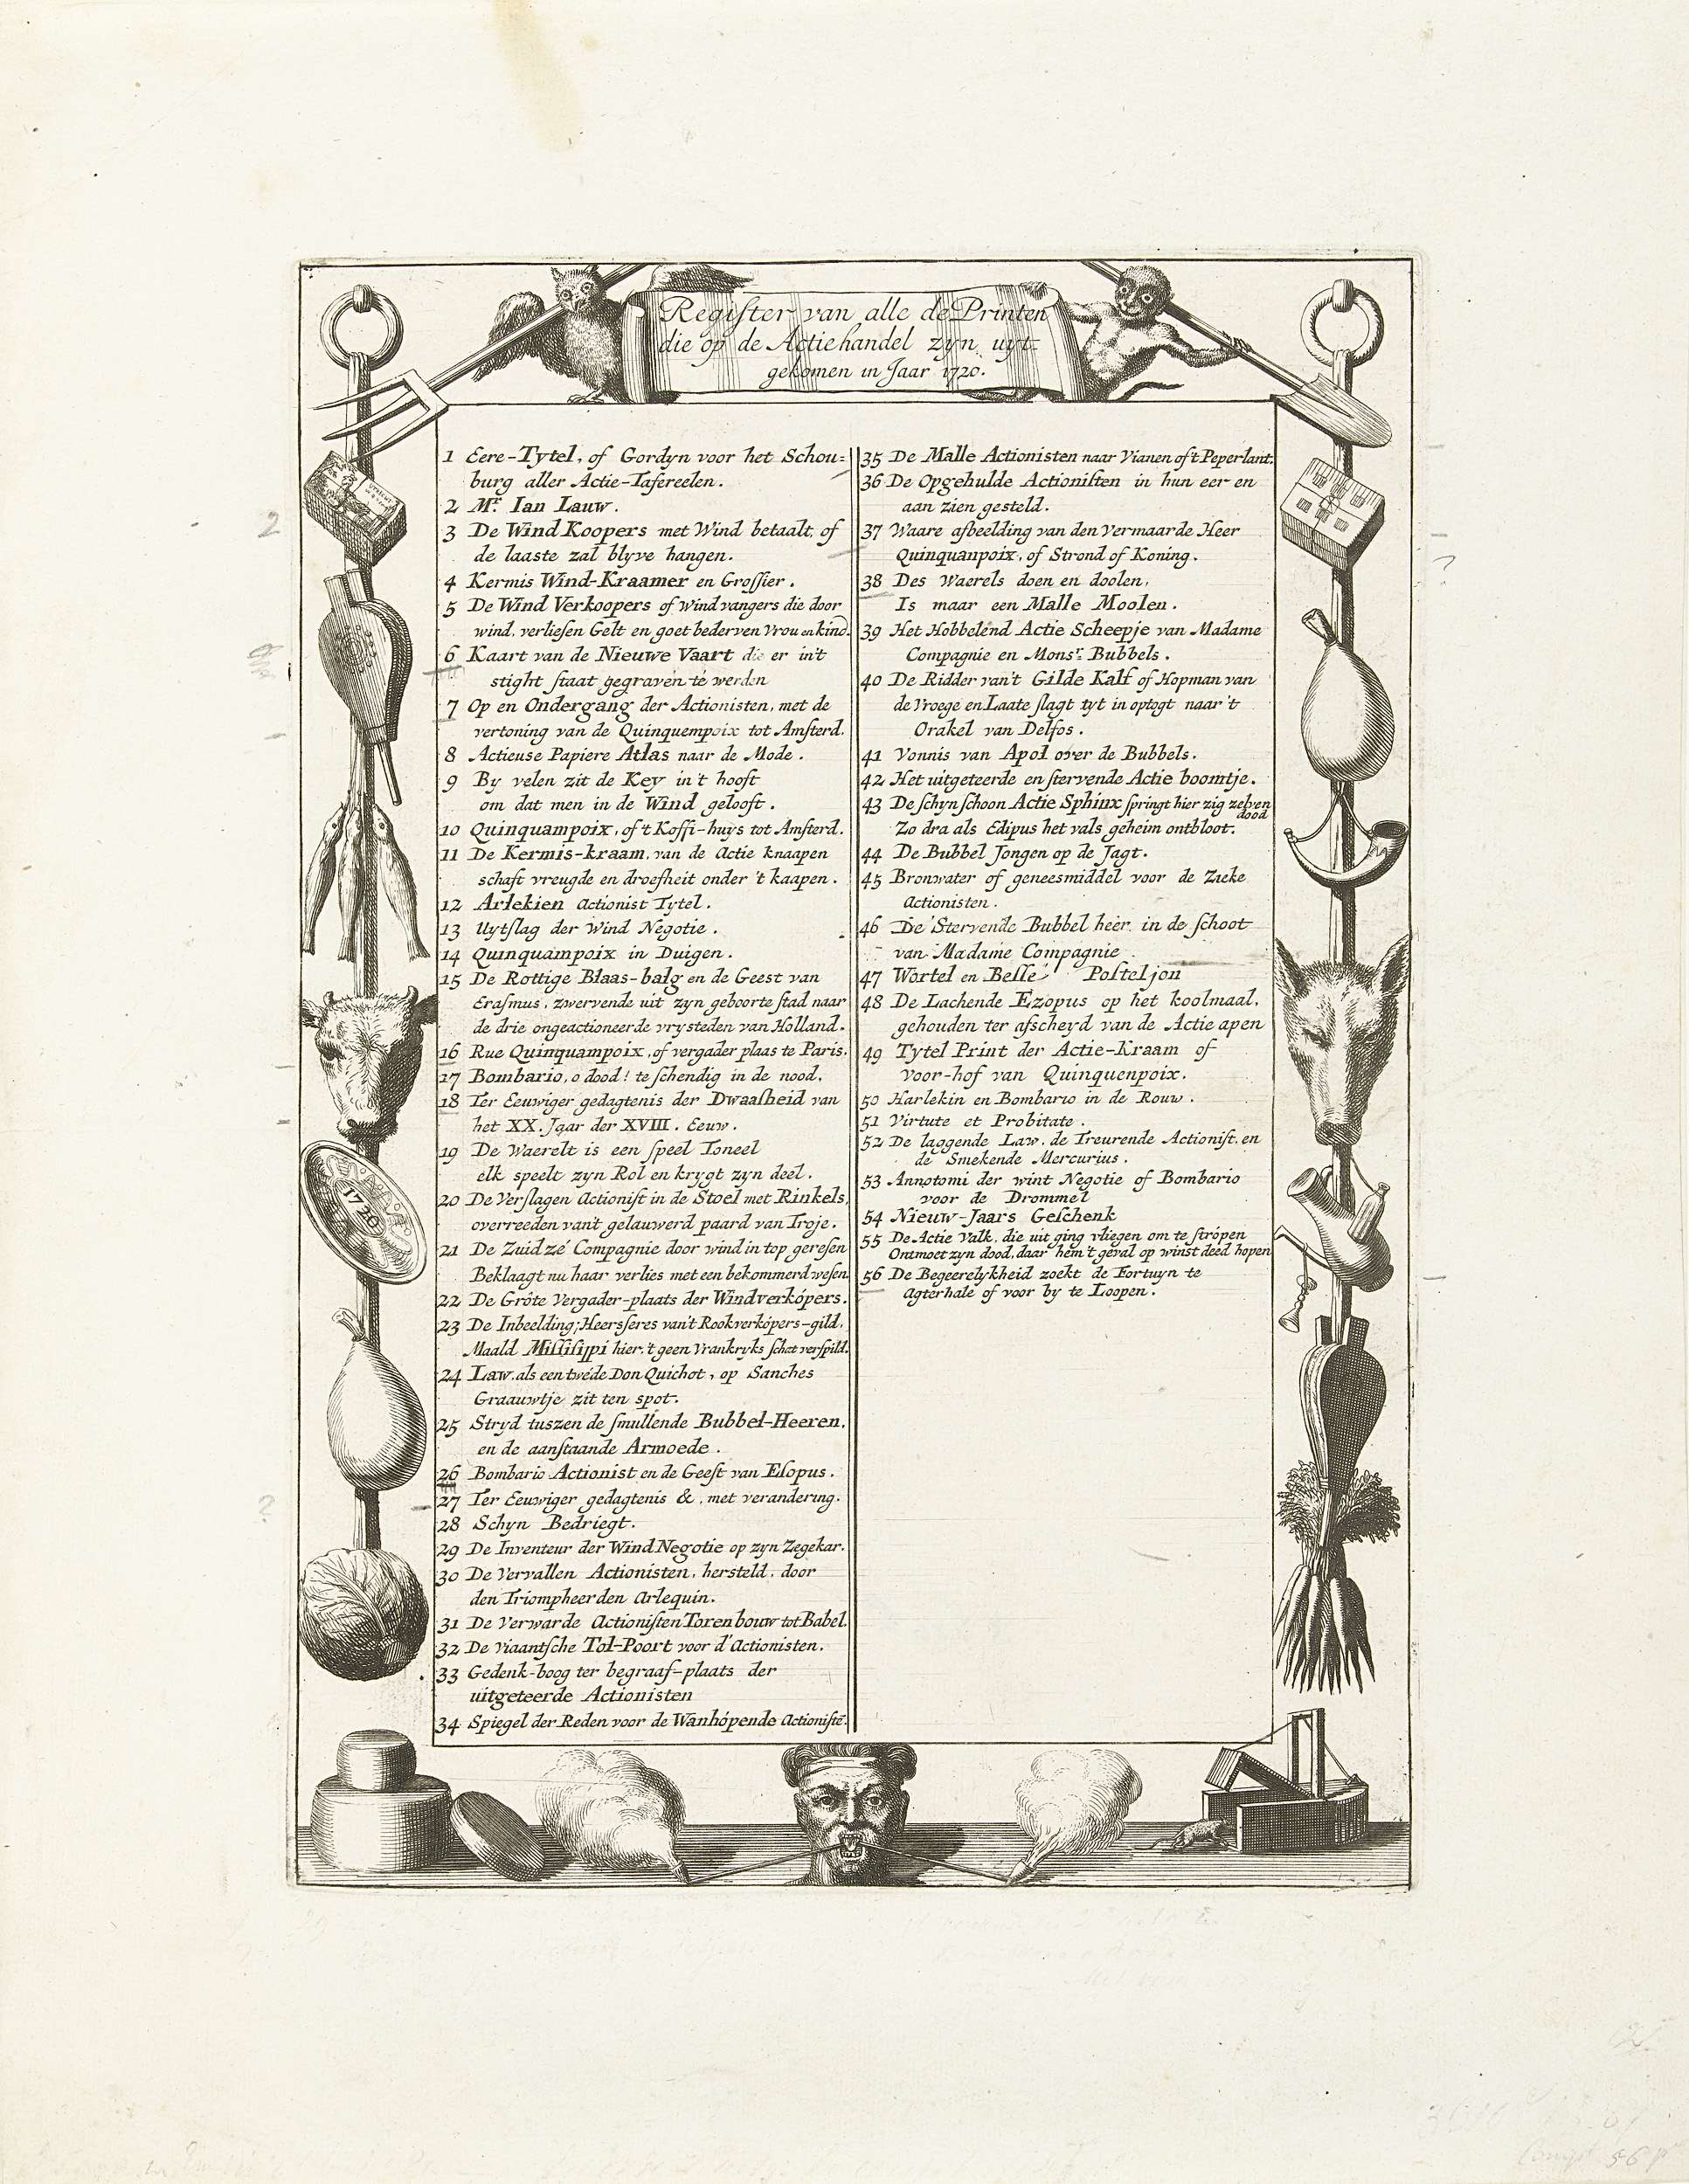 Regiſter van alle de Printen
die op de Actiehandel zyn uyt=
gekomen in Jaar 1720.
1 Eere-Tytel, of Gordyn voor het Schou=
burg aller Actie-Tafereelen.
2 Mr. Ian Lauw.
3 De Wind Koopers met Wind betaalt, of
de laaste zal blyve hangen.
4 Kermis Wind-Kraamer en Groſſier.
5 De Wind Verkoopers of Wind vangers die door
wind, verlieſen Gelt en goet bederven Vrou en kind.
6 Kaart van de Nieuwe Vaart die er in't
stight ſtaat gegraven te werden
7 Op en Ondergang der Actionisten, met de
vertoning van de Quinquempoix tot Amſterd.
8 Actieuse Papiere Atlas naar de Mode.
9 By velen zit de Key in't hooft
om dat men in de Wind gelooft.
10 Quinquampoix, of 't Koffi-huys tot Amſterd.
11 De Kermis-kraam, van de Actie knaapen
schaft vreugde en droefheit onder 't kaapen.
12 Arlekien Actionist Tytel.
13 Uytſlag der Wind Negotie.
14 Quinquampoix in Duigen.
15 De Rottige Blaas-balg en de Geest van
Eraſmus, zwervende uit zyn geboorte ſtad naar
de drie ongeactioneerde vrysteden van Holland.
16 Rue Quinquampoix, of vergader plaas te Paris.
17 Bombario, o dood! te ſchendig in de nood.
18 Ter Eeuwiger gedagtenis der Dwaaſheid van
het XX. Jaar der XVIII. Eeuw.
19 De Waerelt is een ſpeel Toneel
elk speelt zyn Rol en krygt zyn deel.
20 De Verſlagen Actioniſt in de Stoel met Rinkels,
overreeden van't gelauwerd paard van Troje.
21 De Zuid zé Compagnie door wind in top gereſen
Beklaagt nu haar verlies met een bekommerd weſen.
22 De Gróte Vergader-plaats der Windverkópers.
23 De Inbeelding; Heersſeres van't Rookverkópers-gild,
Maald Miſſiſippi hier, 't geen Vrankryks ſchat verſpild.
24 Law, als een twéde Don Quichot, op Sanches
Graauwtje zit ten spot.
25 Stryd tuszen de ſmullende Bubbel-Heeren,
en de aanſtaande Armoede.
26 Bombario Actionist en de Geeſt van Eſopus.
27 Ter Eeuwiger gedagtenis &, met verandering.
28 Schyn Bedriegt.
29 De Inventeur der Wind Negotie op zyn Zegekar.
30 De Vervallen Actionisten, hersteld, door
den Triompheerden Arlequin.
31 De Verwarde Actioniſten Toren bouw tot Babel.
32 De Viaantſche Tol-Poort voor d'Actionisten.
33 Gedenk-boog ter begraaf-plaats der
uitgeteerde Actionisten
34 Spiegel der Reden voor de Wanhópende Actioniſtē.
35 De Malle Actionisten naar Vianen of 't Peperlant.
36 De Opgehulde Actioniſten in hun eer en
aan zien gesteld.
37 Waare afbeelding van den Vermaarde Heer
Quinquanpoix, of Strond of Koning.
38 Des Waerels doen en doolen,
Is maar een Malle Moolen.
39 Het Hobbelend Actie Scheepje van Madame
Compagnie en Monsr. Bubbels.
40 De Ridder van't Gilde Kalf of Hopman van
de Vroege en Laate ſlagt tyt in optogt naar 't
Orakel van Delfos.
41 Vonnis van Apol over de Bubbels.
42 Het uitgeteerde en ſtervende Actie boomtje.
43 De ſchyn ſchoon Actie Sphinx ſpringt hier zig zelven
dood
Zo dra als Edipus het vals geheim ontbloot.
44 De Bubbel Jongen op de Jagt.
45 Bronwater of geneesmiddel voor de Zieke
Actionisten.
46 De Stervende Bubbel heer, in de ſchoot
van Madame Compagnie
47 Wortel en Belle Poſteljon
48 De Lachende Ezopus op het koolmaal,
gehouden ter afscheyd van de Actie apen
49 Tytel Print der Actie-Kraam of
Voor-hof van Quinquenpoix.
50 Harlekin en Bombario in de Rouw.
51 Virtute et Probitate.
52 De laggende Law, de Treurende Actioniſt, en
de Smekende Mercurius.
53 Annotomi der wint Negotie of Bombario
voor de Drommel
54 Nieuw-Jaars Geſchenk
55 De Actie Valk, die uit ging vliegen om te ſtrópen
Ontmoet zyn dood, daar hem't geval op winst deed hopen
56 De Begeerelykheid zoekt de Fortuyn te
agterhale of voor by te Loopen.
1720
2
?
?